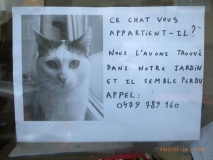 CE CHAT VOUS
APPARTIENT-IL?
NOUS L'AVONS TROUVÉ
DANS NOTRE JARDIN
ET IL SEMBLE PERDU
APPEL:
0479 789 160